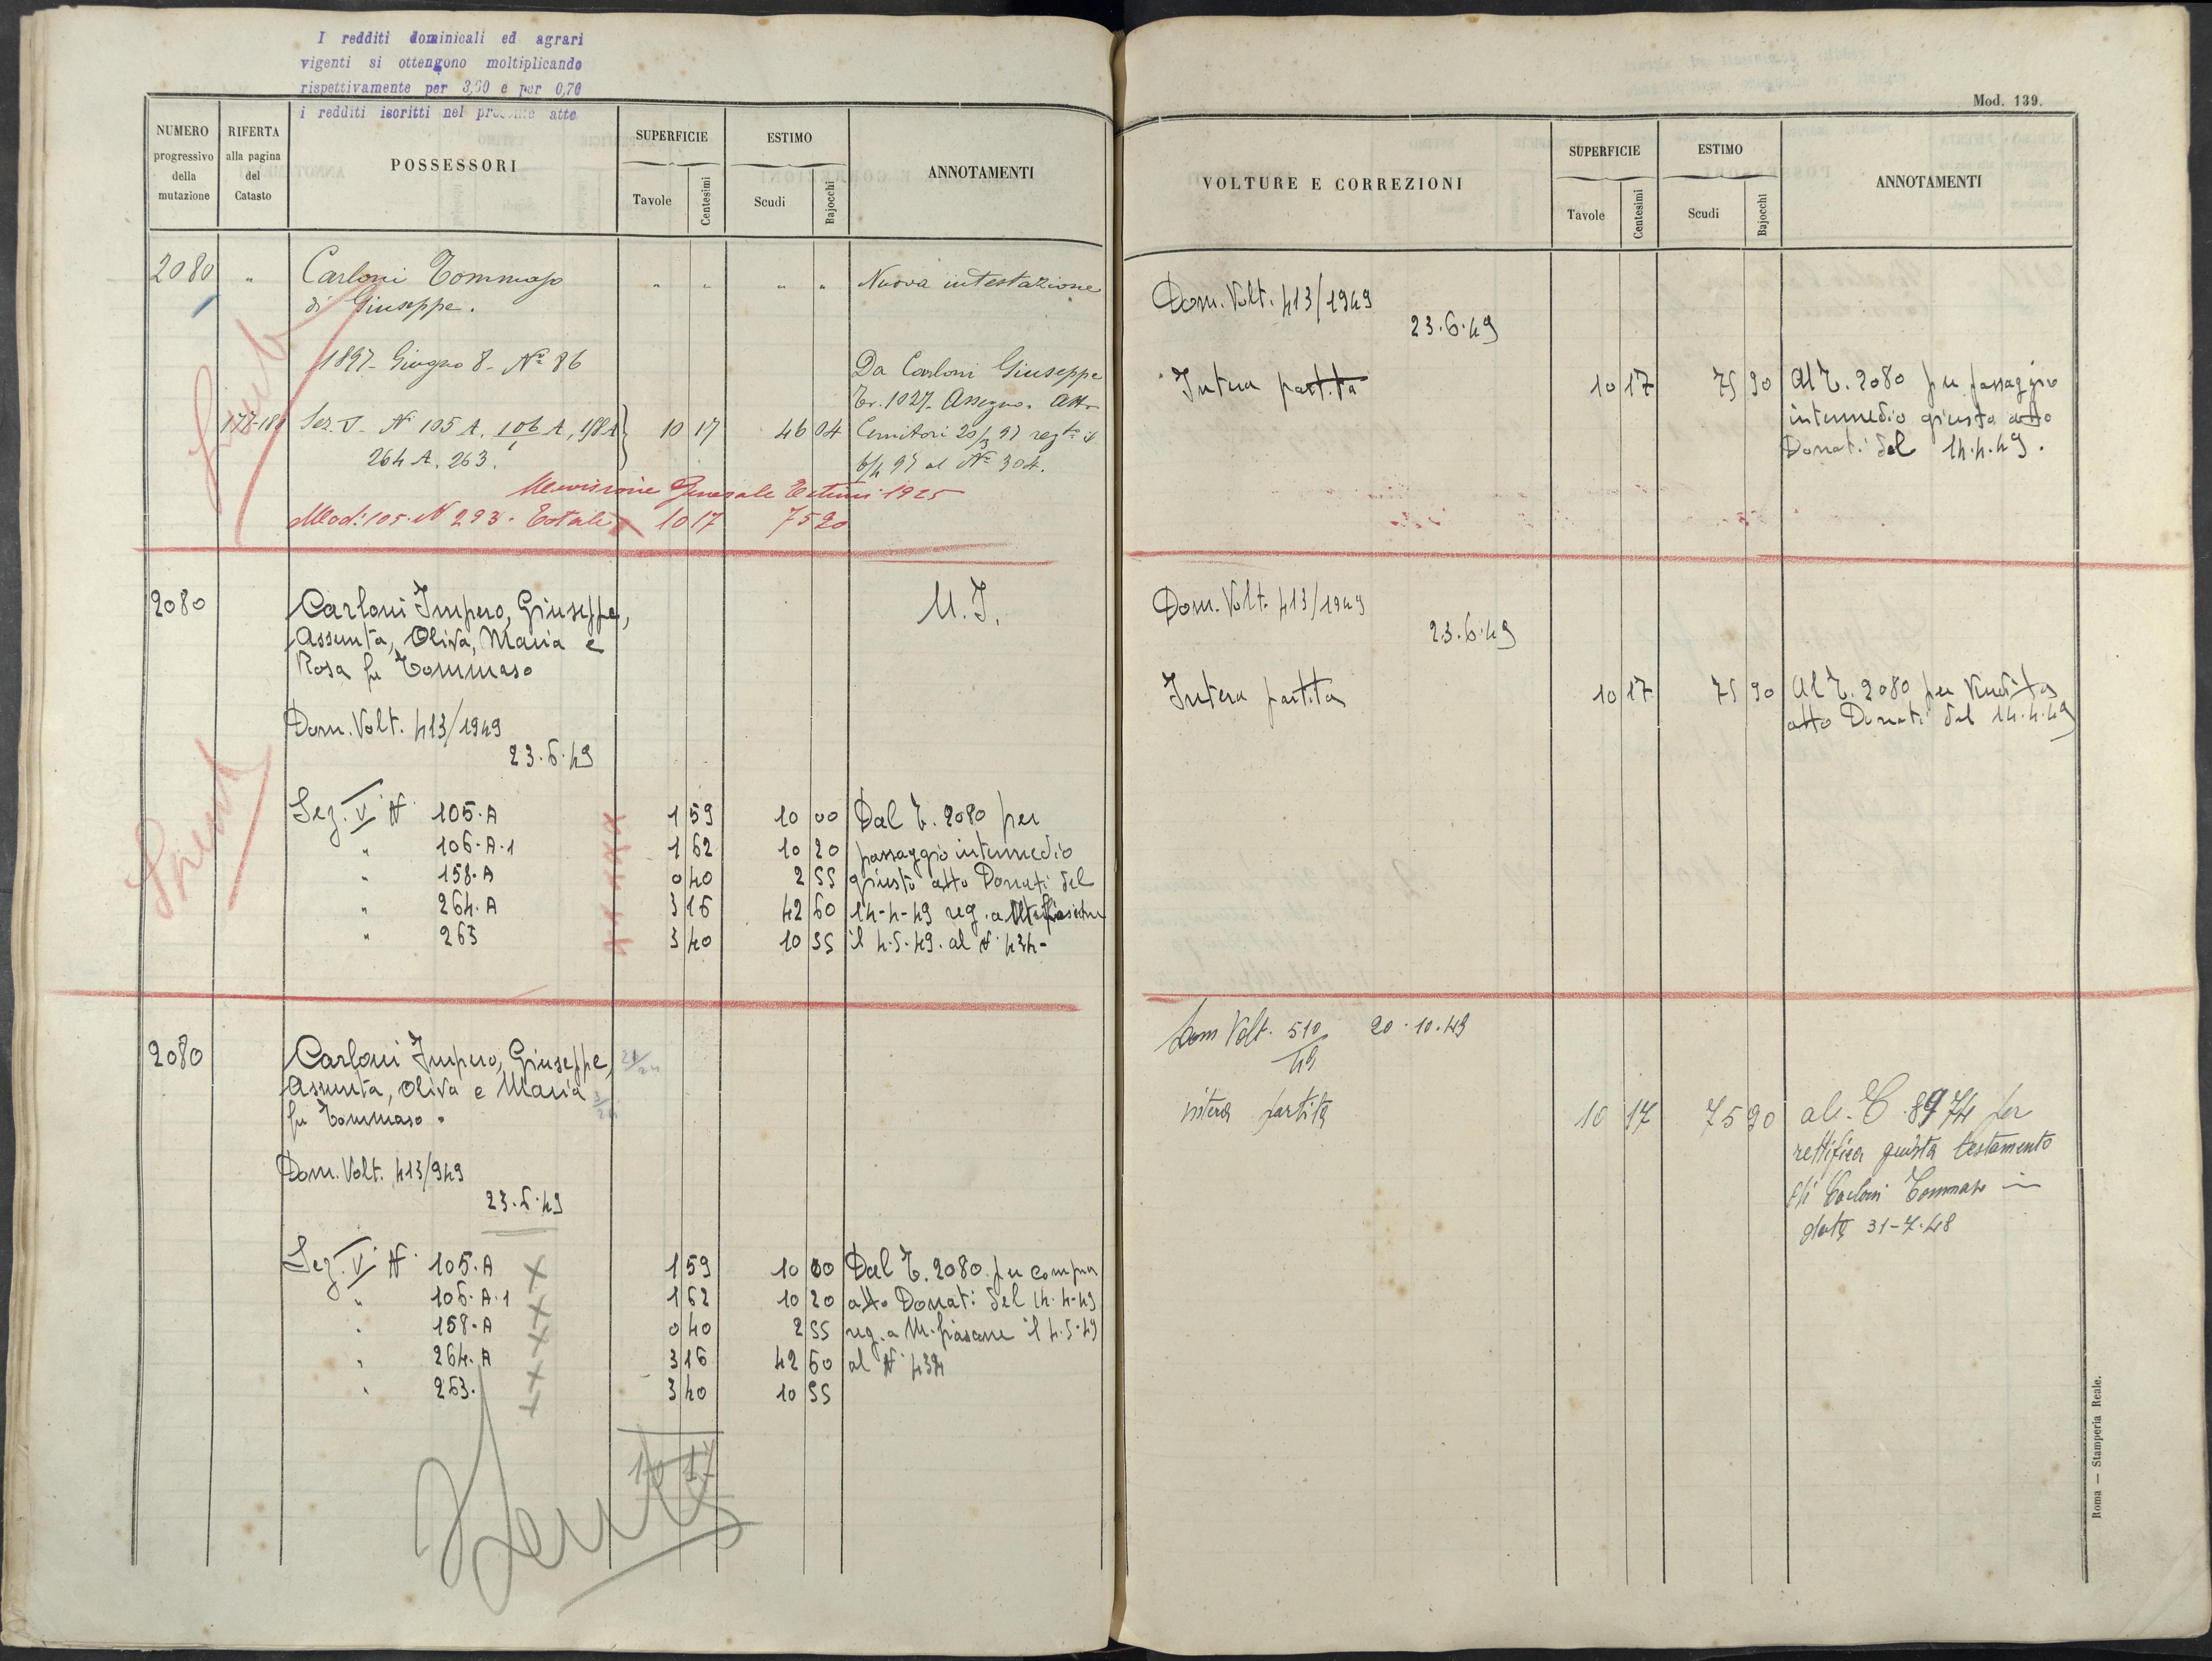 I redditi dominicali ed agrari
vigenti si ottengono moltiplicando
rispettivamente per 3,60 e per 0,70
i redditi iscritti nel presente atto
NUMERO
progressivo
della
mutazione
RIFERTA
alla pagina
del
Catasto
POSSESSORI
SUPERFICIE
Tavole
Centesimi
ESTIMO
Scudi
Bajocchi
ANNOTAMENTI
2080 " Carloni Tommaso " " " " Nuova intestazione
di Giuseppe.
1897 - Giugno 8 - Nº 86
Da Carloni Giuseppe
Tr. 1027. Assegno. Atto
177-181 Sez. V. Nº 105 A, 106/1 A, 158 A 10 17 46 04 20/3 97 regto il
264 A. 263. 6/4 97 al Nº 304.
Revisione Generale Estimi 1925
Mod: 105. N 293. Totale 10 17 75 90
2080 Carloni Impero, Giuseppe, U.I.
Assunta, Oliva, Maria e
Rosa fu Tommaso
Dom. Volt. 413/1949
23.6.49
Sez. V N. 105.A 1 59 10 00 Dal T. 2080 per
" 106.A.1 1 62 10 20 passaggio intermedio
" 158.A 0 40 2 55 giusto atto Donati del
" 264.A 3 16 42 60 14-4-49 reg. a
" 263 3 40 10 55 il 4.5.49. al N. 434-
2080 Carloni Impero, Giuseppe, 21/24
Assunta, Oliva e Maria 3/24
fu Tommaso.
Dom. Volt. 413/949
23.6.49
Sez. V N. 105.A 1 59 10 00 Dal T. 2080 per compra
" 106.A.1 1 62 10 20 atto Donati del 14.4-49
" 158.A 0 40 2 55 reg. a il 4.5.49
" 264.A 3 16 42 60 al N. 434
" 263. 3 40 10 55
10 17
Mod. 139.
VOLTURE E CORREZIONI
SUPERFICIE
Tavole
Centesimi
ESTIMO
Scudi
Bajocchi
ANNOTAMENTI
Dom. Volt. 413/1949
23.6.49
Intera partita 10 17 75 90 Al T. 2080 per passaggio
intermedio giusta atto
Donati del 14.4.49.
Dom. Volt. 413/1949
23.6.49
Intera partita 10 17 75 90 Al T. 2080 per vendita
atto Donati del 14.4.49
Dom Volt. 510/49 20.10.49
intera partita 10 17 75 90 al T. 8974 per
rettifica giusta testamento
di Carloni Tommaso in
data 31-7-48
Roma — Stamperia Reale.